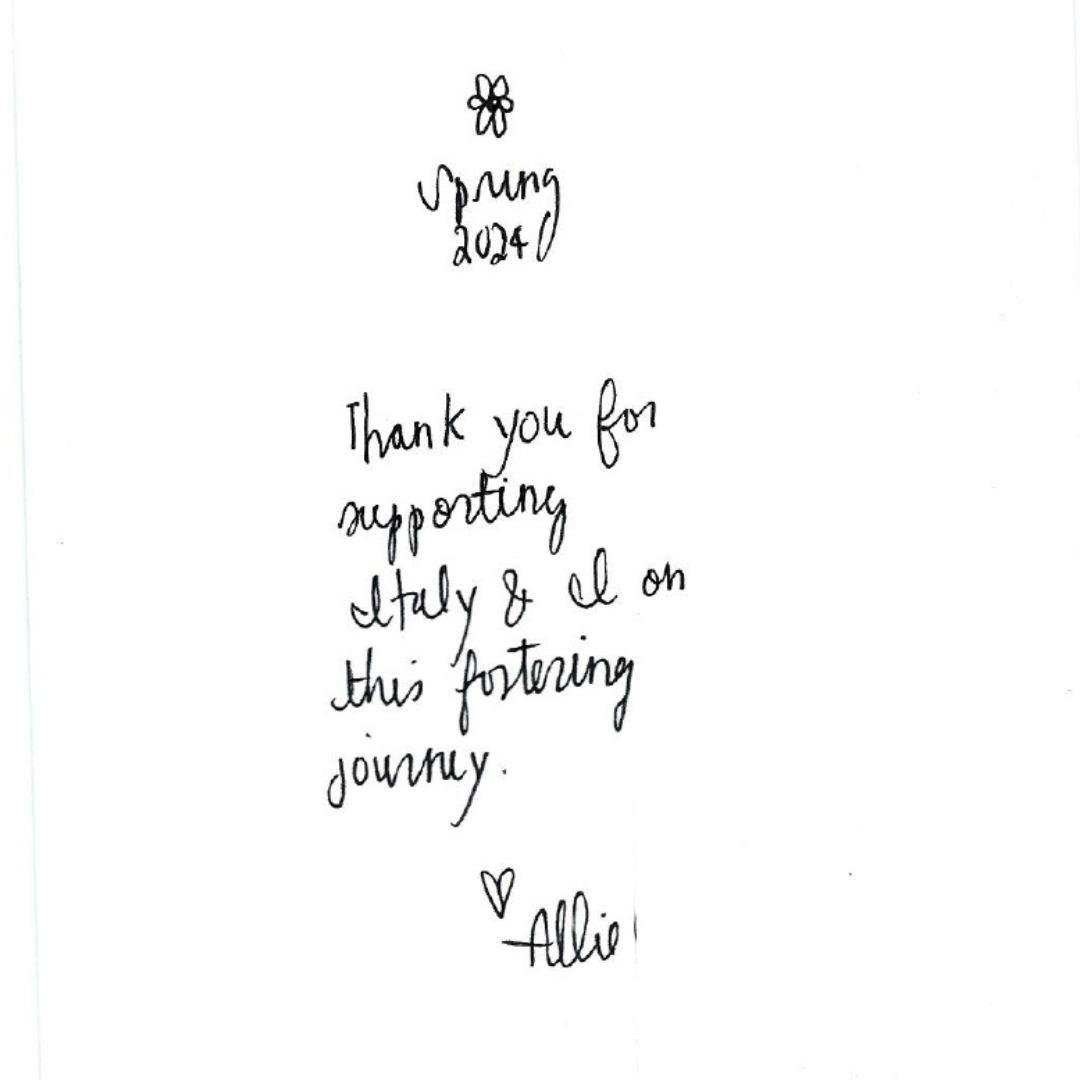 Spring
2024
Thank you for
supporting
Italy & I on
this fostering
journey.
Allie